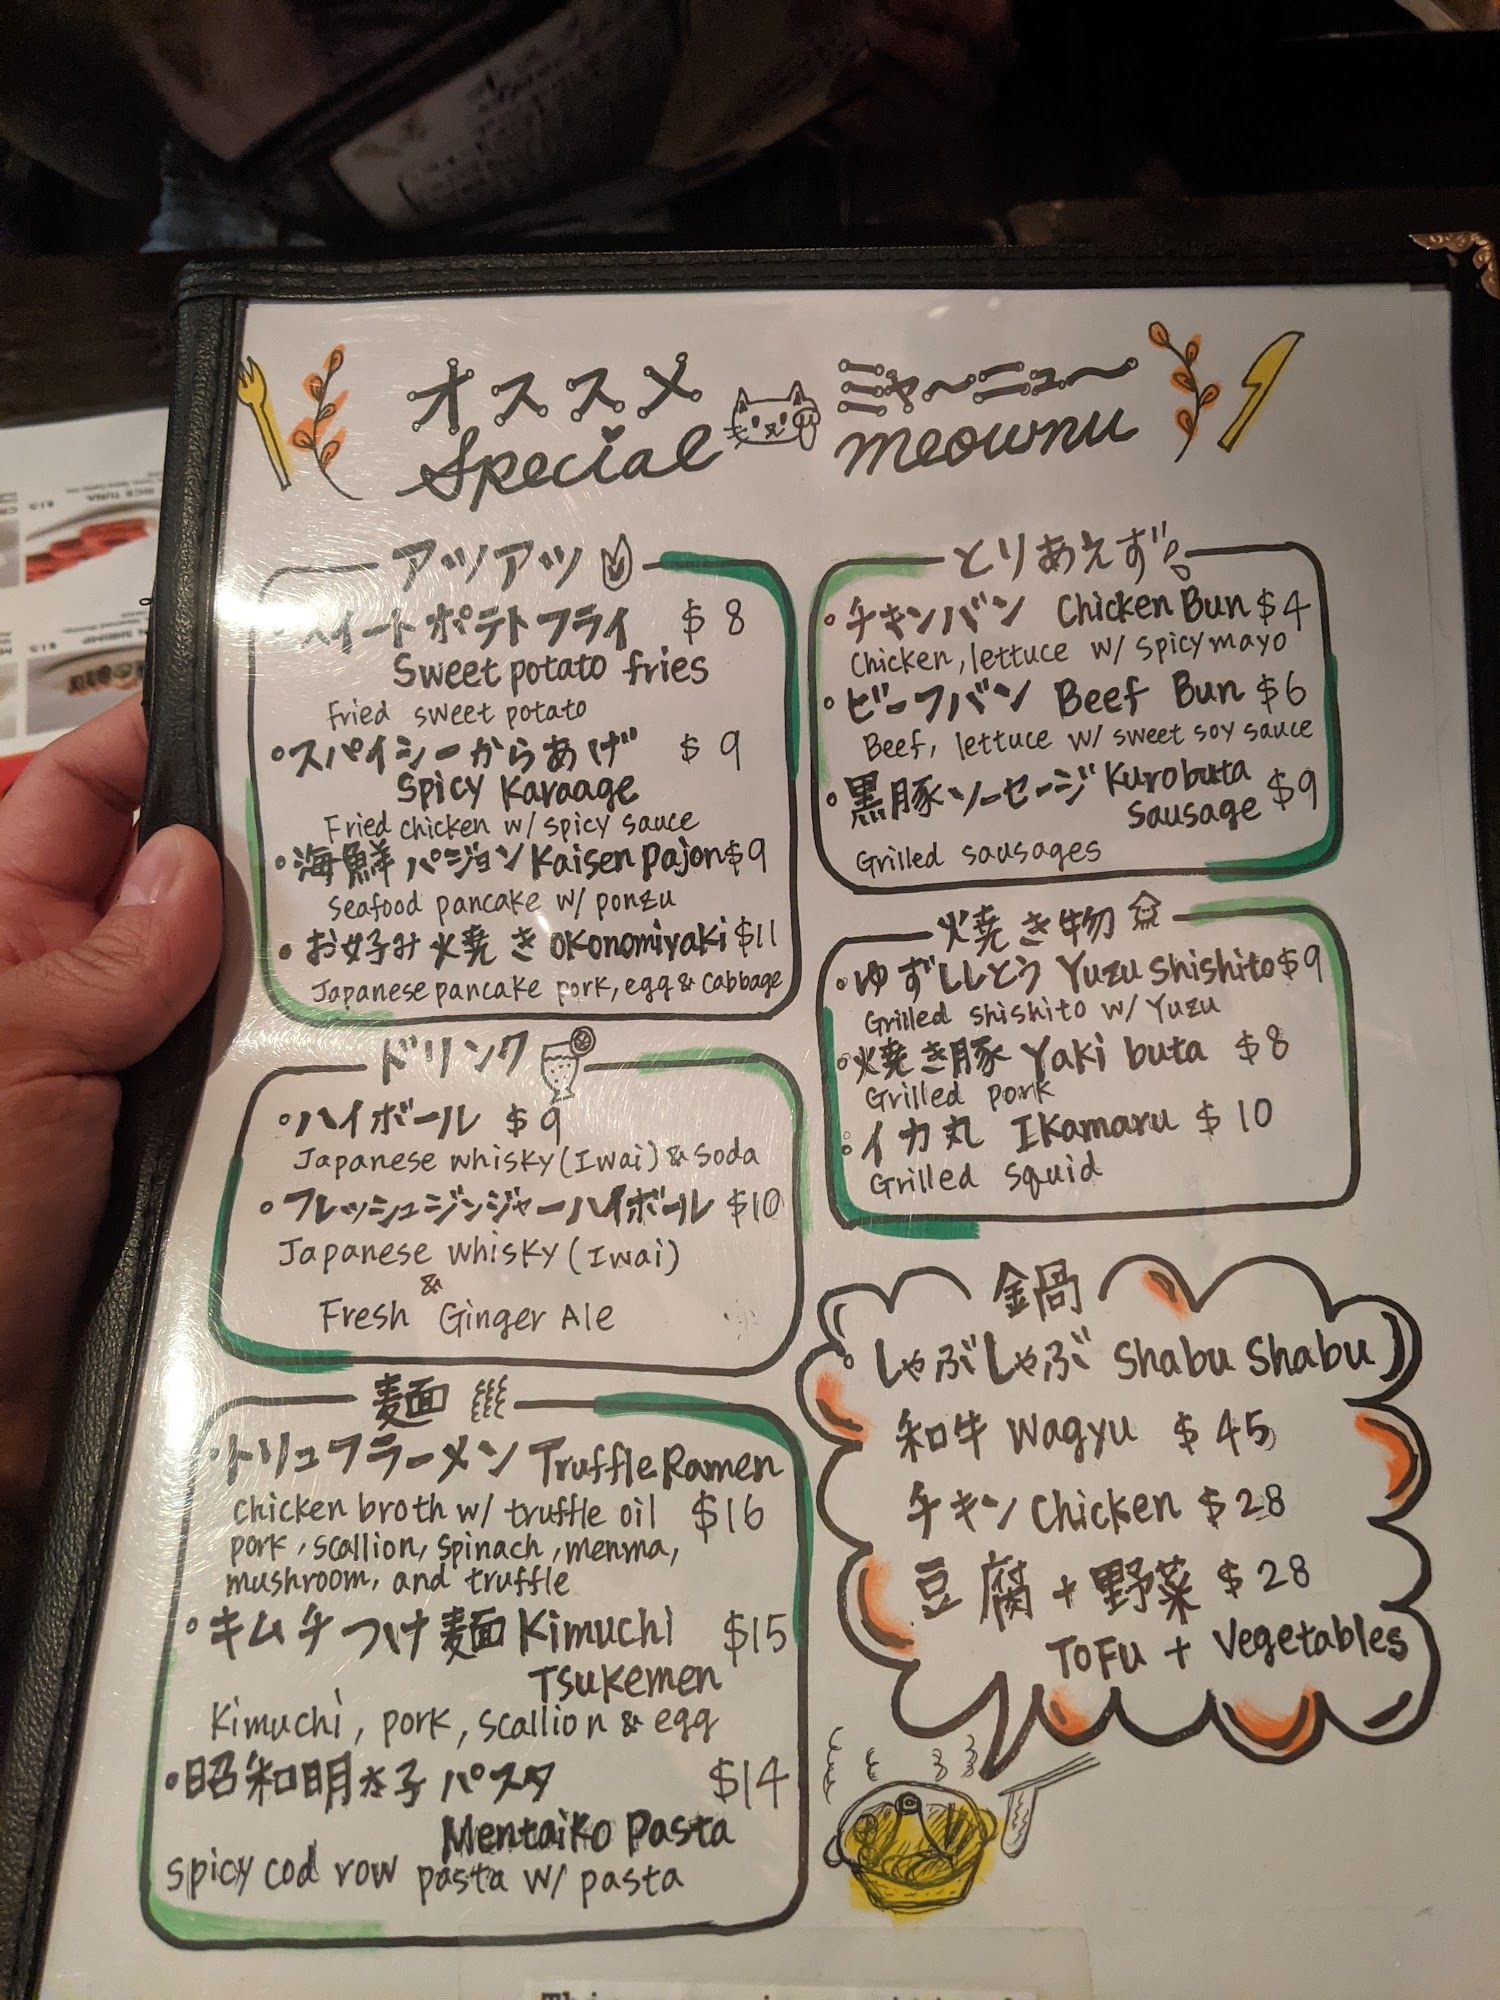 オススメ ミャ〜ニュ〜
Special meownu
アツアツ
スイートポテトフライ $8
Sweet potato fries
Fried sweet potato
・スパイシーからあげ $9
Spicy Karaage
Fried chicken w/ spicy sauce
・海鮮パジョン Kaisen Pajon $9
Seafood pancake w/ ponzu
・お好み焼き Okonomiyaki $11
Japanese pancake pork, egg & cabbage
ドリンク
・ハイボール $9
Japanese whisky (Iwai) & Soda
・フレッシュジンジャーハイボール $10
Japanese whisky (Iwai)
&
Fresh Ginger Ale
麺
・トリュフラーメン Truffle Ramen
chicken broth w/ truffle oil $16
pork, scallion, spinach, menma,
mushroom, and truffle
・キムチつけ麺 Kimuchi $15
Tsukemen
Kimuchi, pork, scallion & egg
・昭和明太子パスタ $14
Mentaiko Pasta
Spicy cod row pasta w/ pasta
とりあえず
・チキンバン Chicken Bun $4
Chicken, lettuce w/ spicy mayo
・ビーフバン Beef Bun $6
Beef, lettuce w/ sweet soy sauce
・黒豚ソーセージ Kurobuta
Sausage $9
Grilled sausages
焼き物
・ゆずししとう Yuzu Shishito $9
Grilled shishito w/ Yuzu
・焼き豚 Yaki buta $8
Grilled pork
・イカ丸 Ikamaru $10
Grilled squid
鍋
・しゃぶしゃぶ Shabu Shabu
和牛 Wagyu $45
チキン Chicken $28
豆腐+野菜 $28
Tofu + Vegetables